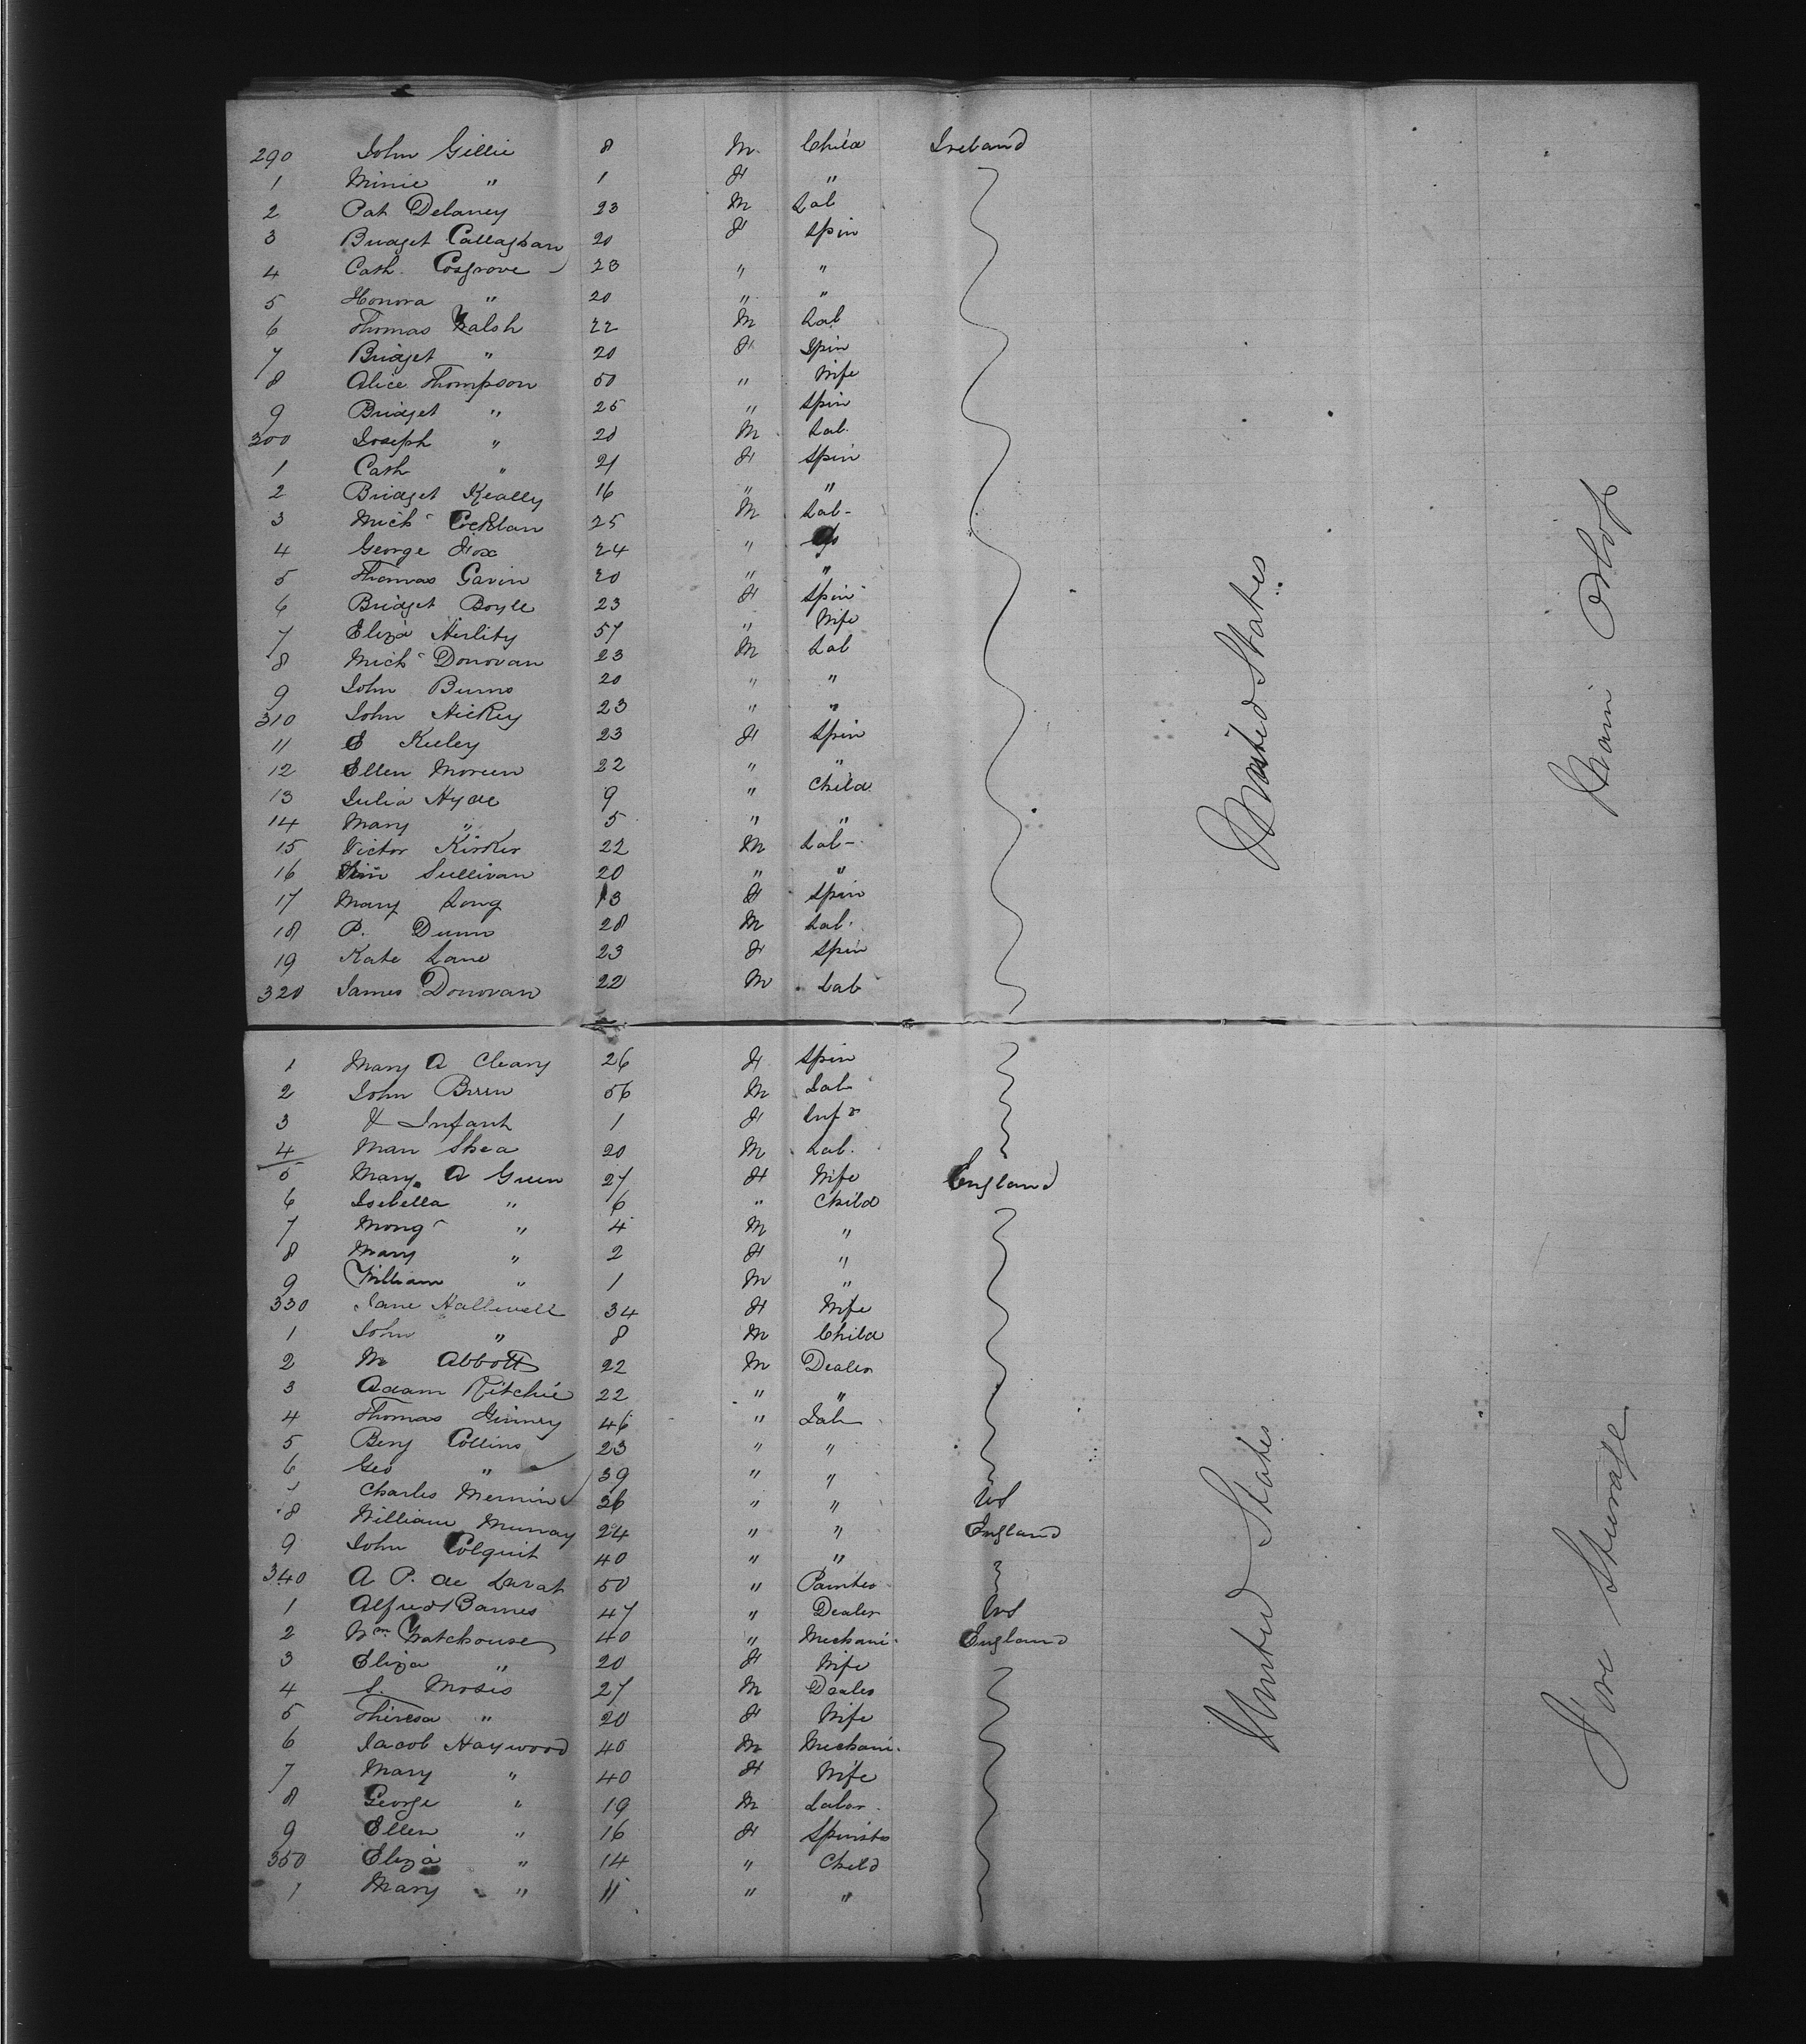 290 John Gillie 8 M Child Ireland
1 Minie " 1 F "
2 Pat Delaney 23 M Lab
3 Bridget Callaghan 20 F Spin
4 Cath. Cosgrove 23 " "
5 Honora " 20 " "
6 Thomas Walsh 22 M Lab
7 Bridget " 20 F Spin
8 Alice Thompson 50 " Wife
9 Bridget " 25 " Spin
300 Joseph " 20 M Lab.
1 Cath " 21 F Spin
2 Bridget Keally 16 " "
3 Mich Cocklan 25 M Lab-
4 George Fox 24 "
5 Thomas Gavin 20 " "
6 Bridget Boyle 23 F Spin
7 Eliza Herlity 57 " Wife
8 Mich Donovan 23 M Lab
9 John Burns 20 " "
310 John Hickey 23 " "
11 E Keeley 23 F Spin
12 Ellen Moreen 22 " "
13 Julia Hyde 9 " Child
14 Mary " 5 " "
15 Victor Kirker 22 M Lab-
16 Sullivan 20 " "
17 Mary Long 13 F Spin
18 P. Dunn 28 M Lab.
19 Kate Lane 23 F Spin
320 James Donovan 22 M Lab
United States
Main Orlop
1 Mary A Cleary 26 F Spin
2 John Bren 56 M Lab
3 & Infant 1 F Inft
4 Man Shea 20 M Lab.
5 Mary A Green 27 F Wife England
6 Isebella " 6 " Child
7 Mong " 4 M "
8 Mary " 2 F "
9 William " 1 M "
330 Jane Halliwell 34 F Wife
1 John " 8 M Child
2 M Abbott 22 M Dealer
3 Adam Ritchie 22 " "
4 Thomas Finney 46 " Lab
5 Benj Collins 23 " "
6 Geo " 39 " "
7 Charles Mernin 36 " " US
8 William Murray 24 " " England
9 John Colquit 40 " "
340 A P. de Lavat 50 " Painter
1 Alfred Barnes 47 " Dealer US
2 Wm Watehouse 40 " Mechani. England
3 Eliza " 20 F Wife
4 S. Moses 27 M Dealer
5 Theresa " 20 F Wife
6 Jacob Haywood 40 M Mechani.
7 Mary " 40 F Wife
8 George " 19 M Labor.
9 Ellen " 16 F Spinster
350 Eliza " 14 " Child
1 Mary " 11 " "
United States
Fore Steerage